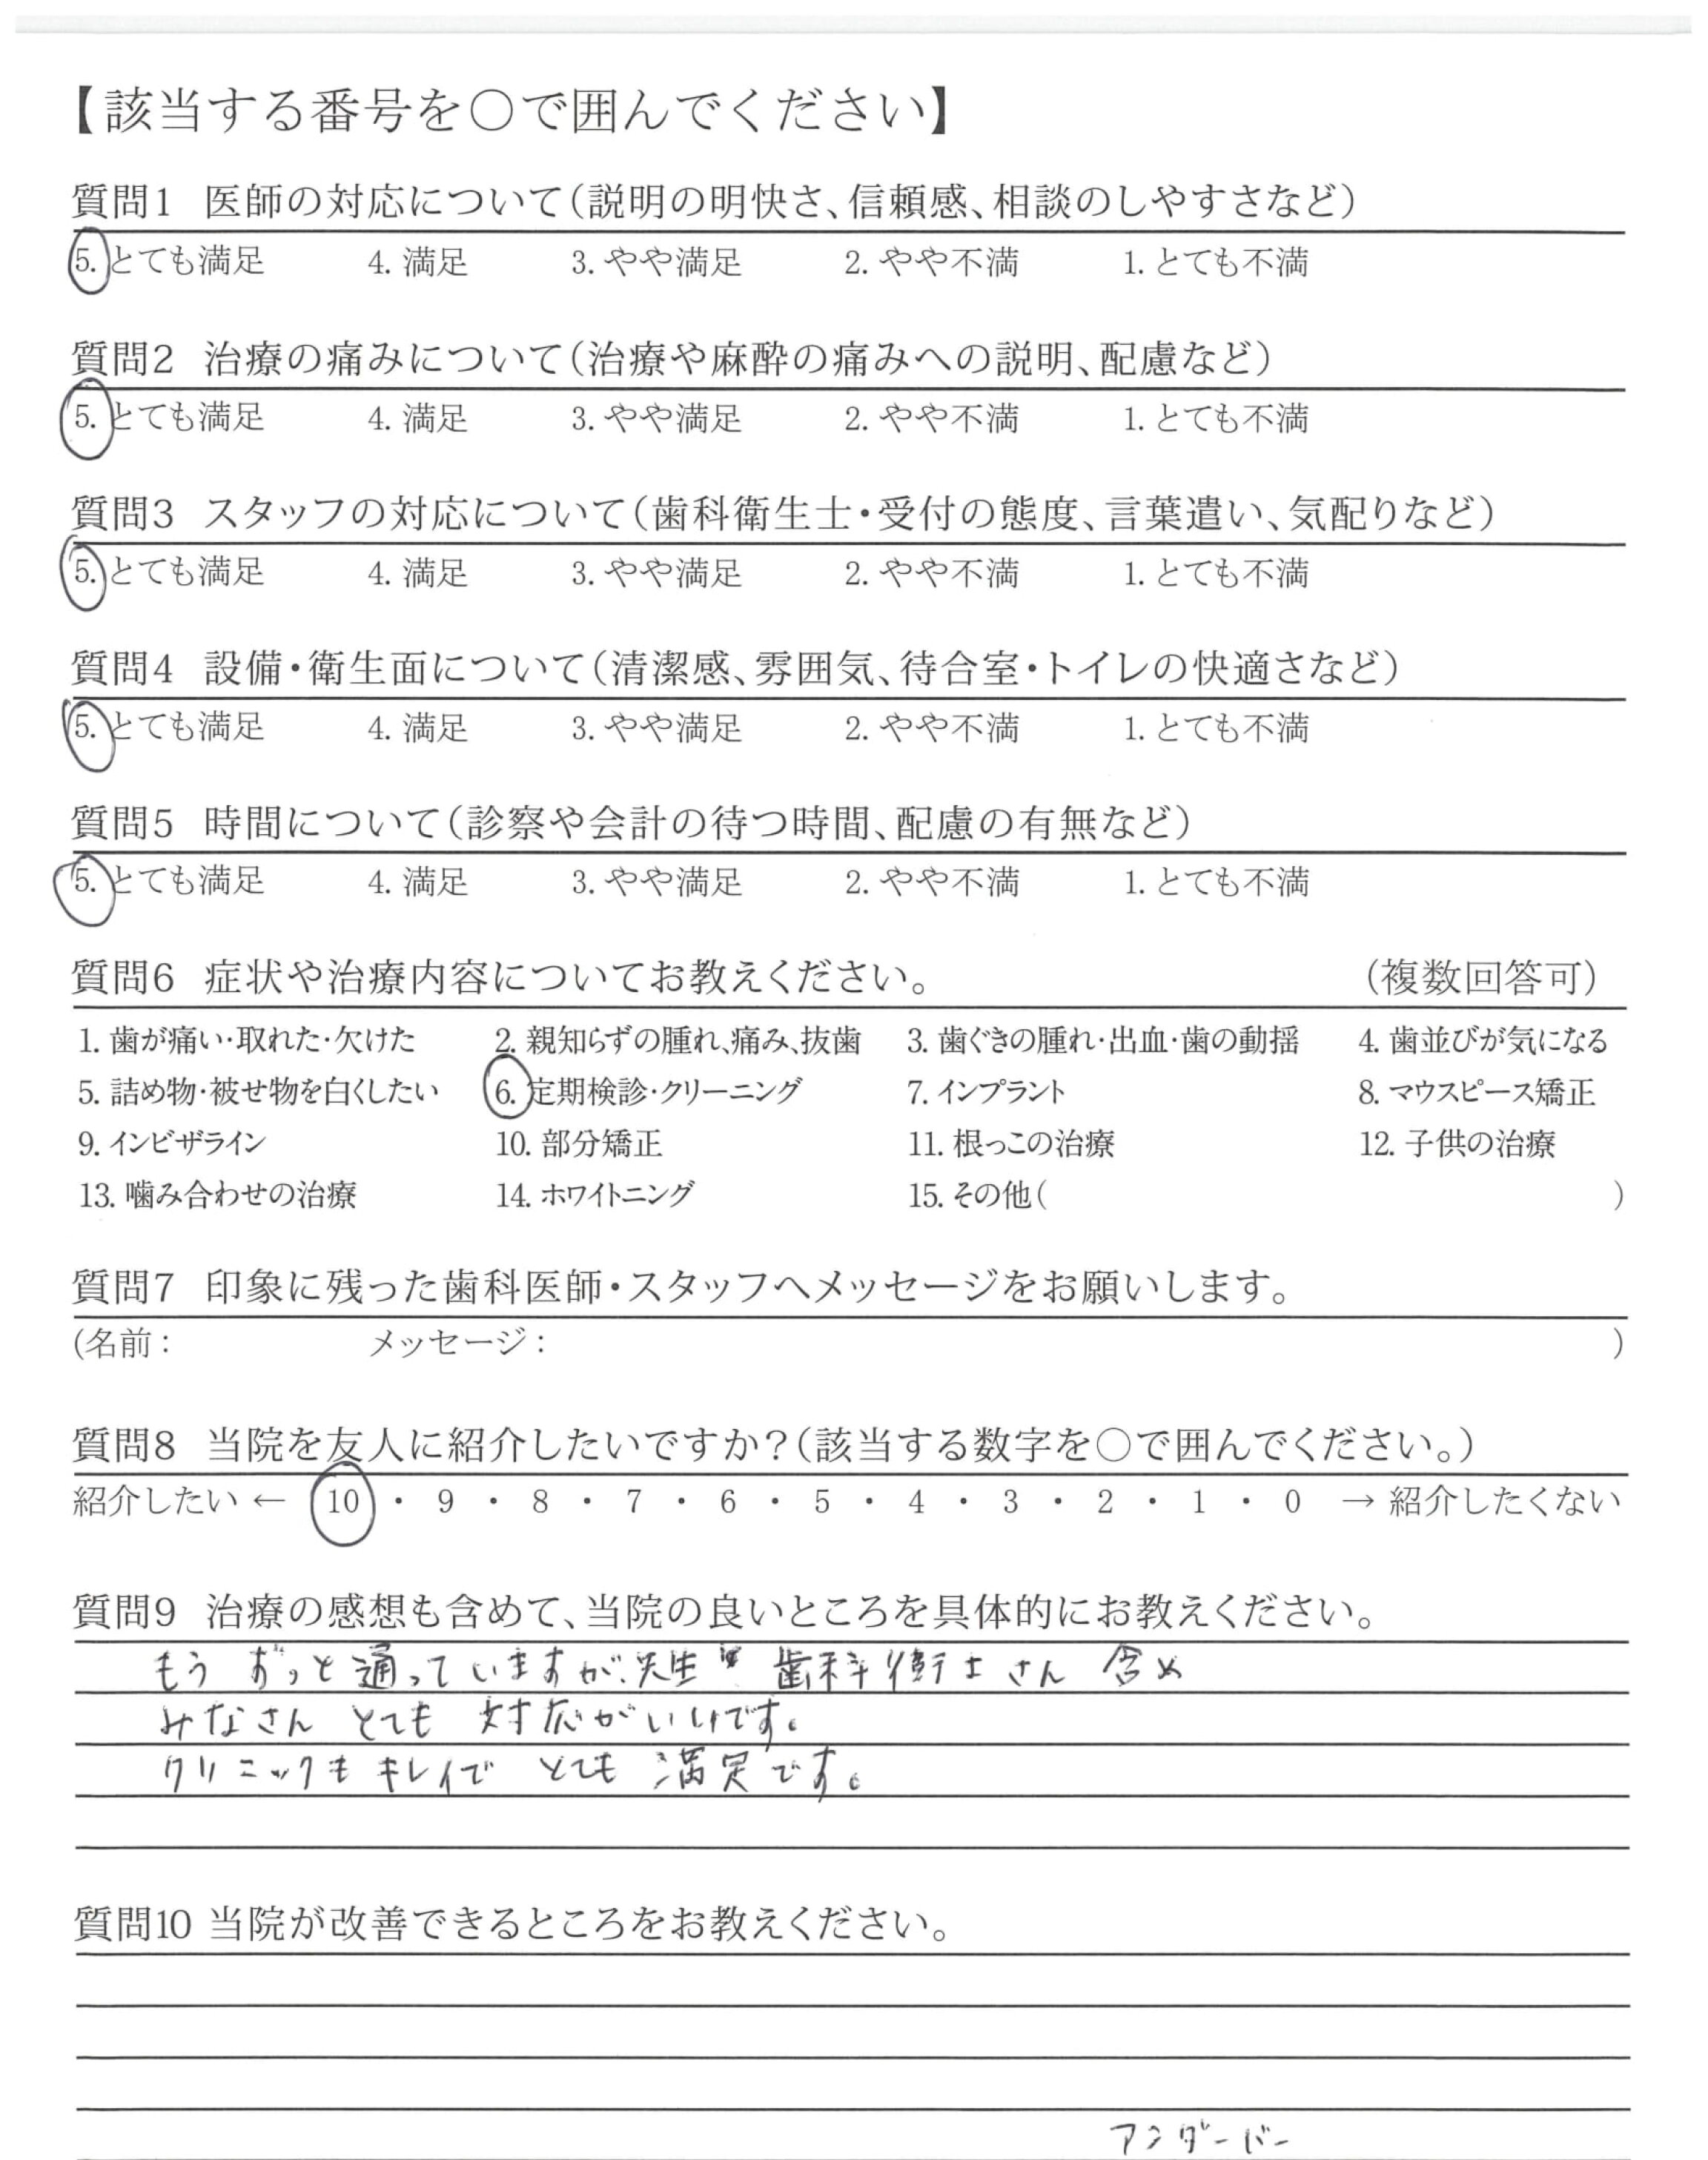 【該当する番号を○で囲んでください】
質問1 医師の対応について(説明の明快さ、信頼感、相談のしやすさなど)
5. とても満足 4. 満足 3. やや満足 2. やや不満 1. とても不満
質問2 治療の痛みについて(治療や麻酔の痛みへの説明、配慮など)
5. とても満足 4. 満足 3. やや満足 2. やや不満 1. とても不満
質問3 スタッフの対応について(歯科衛生士・受付の態度、言葉遣い、気配りなど)
5. とても満足 4. 満足 3. やや満足 2. やや不満 1. とても不満
質問4 設備・衛生面について(清潔感、雰囲気、待合室・トイレの快適さなど)
5. とても満足 4. 満足 3. やや満足 2. やや不満 1. とても不満
質問5 時間について(診察や会計の待つ時間、配慮の有無など)
5. とても満足 4. 満足 3. やや満足 2. やや不満 1. とても不満
質問6 症状や治療内容についてお教えください。 (複数回答可)
1. 歯が痛い・取れた・欠けた 2. 親知らずの腫れ、痛み、抜歯 3. 歯ぐきの腫れ・出血・歯の動揺 4. 歯並びが気になる
5. 詰め物・被せ物を白くしたい 6. 定期検診・クリーニング 7. インプラント 8. マウスピース矯正
9. インビザライン 10. 部分矯正 11. 根っこの治療 12. 子供の治療
13. 噛み合わせの治療 14. ホワイトニング 15. その他( )
質問7 印象に残った歯科医師・スタッフへメッセージをお願いします。
(名前: メッセージ: )
質問8 当院を友人に紹介したいですか?(該当する数字を○で囲んでください。)
紹介したい ← 10 ・ 9 ・ 8 ・ 7 ・ 6 ・ 5 ・ 4 ・ 3 ・ 2 ・ 1 ・ 0 → 紹介したくない
質問9 治療の感想も含めて、当院の良いところを具体的にお教えください。
もう ずっと通っていますが、先生 歯科衛士さん 含め
みなさん とても 対応がいいです。
クリニックも キレイで とても 満足です。
質問10 当院が改善できるところをお教えください。
アンダーバー